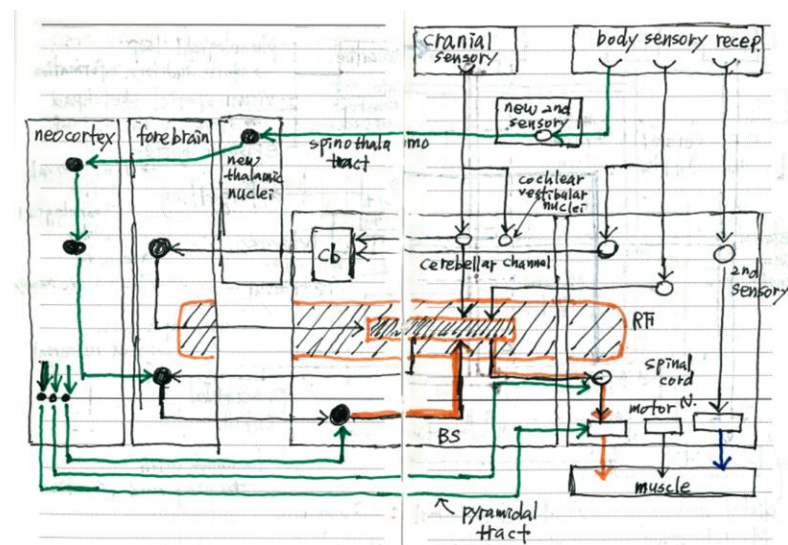 cranial
sensory
body sensory recep.
new 2nd
sensory
neocortex
forebrain
new
thalamic
nuclei
spinothalamo
tract
cochlear
vestibular
nuclei
cb
cerebellar channel
2nd
sensory
RF
spinal
cord
motor N.
BS
muscle
pyramidal
tract